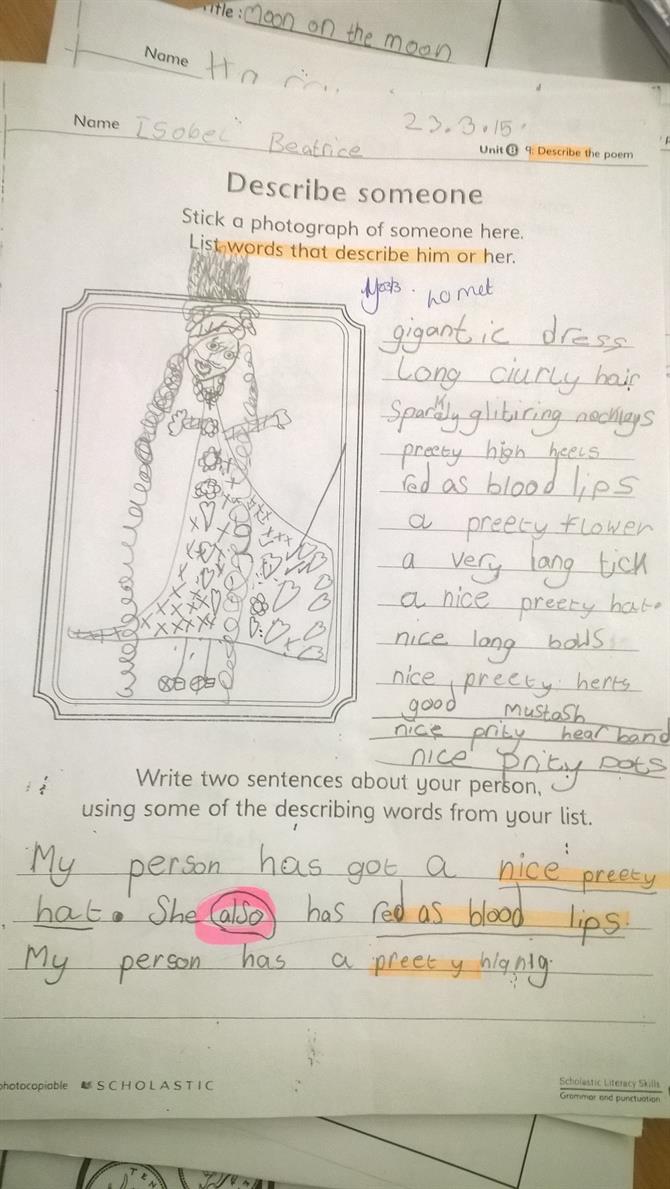 Title: Moon on the moon
Name
Name Isobel Beatrice 23.3.15.
Unit 8 9: Describe the poem
Describe someone
Stick a photograph of someone here.
List words that describe him or her.
homet
gigantic dress
Long ciurly hair
Sparkly glitiring necklays
preety high heels
red as blood lips
a preety flower
a very lang tick
a nice preety hat.
nice long bolls
nice preety herts
good mustash
nice prity hear band
nice prity Dots
Write two sentences about your person,
using some of the describing words from your list.
My person has got a nice preety
hat. She also has red as blood lips.
My person has a preety
photocopiable SCHOLASTIC
Scholastic Literacy Skills
Grammar and punctuation
TEN